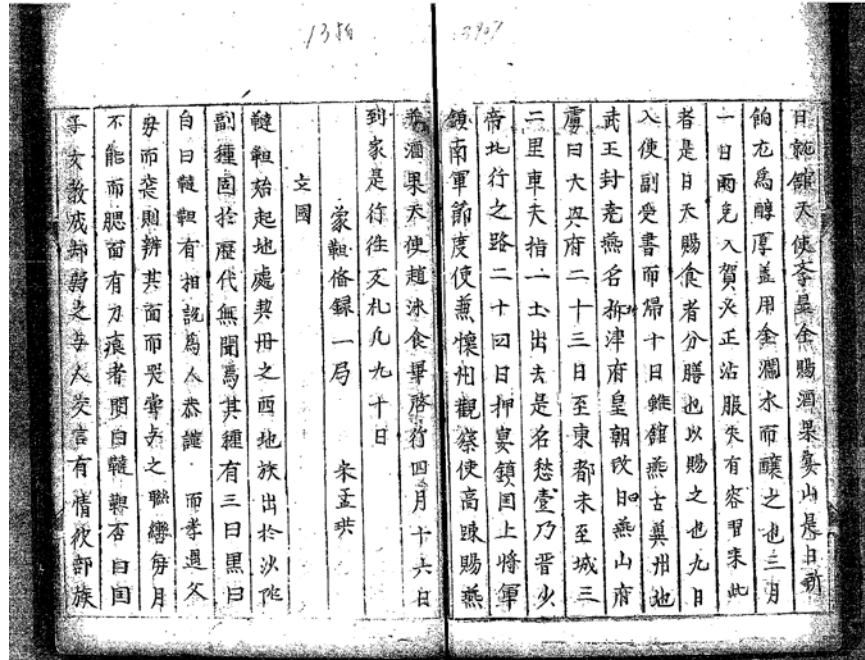 1386
3907
日就館天使李是全賜酒果宴山是日所
餉尤為醇厚盖用金瀾水而釀之也三月
一日兩免入賀次正沾服失有容習来此
者是日天賜食者分膳也以賜之也九日
入使副受書而帰十日離館燕古冀州地
武王封尭燕名析津府皇朝改曰燕山府
虜曰大興府二十三日至東都未至城三
二里車夫指一土出去是名愁臺乃晋少
帝北行之路二十四日押宴鎮国上將軍
鎮南軍節度使兼懐州觀察使高踈賜燕
兼酒果天使趙泳食畢啓行四月十六日
到家是行徃交札凢九十日
蒙韃俻録一局 宋孟珙
立國
韃靼始起地處契丹之西地族出於沙陀
副種固於歴代無聞焉其種有三曰黒曰
白曰韃靼有相説為人恭謹 而孝遇父
毋而䘮則辨其面而哭嘗与之聯轡毎月
不能而腮面有刀痕者問曰韃靼否曰国
子女教成却弱之与人交言有情彼部族